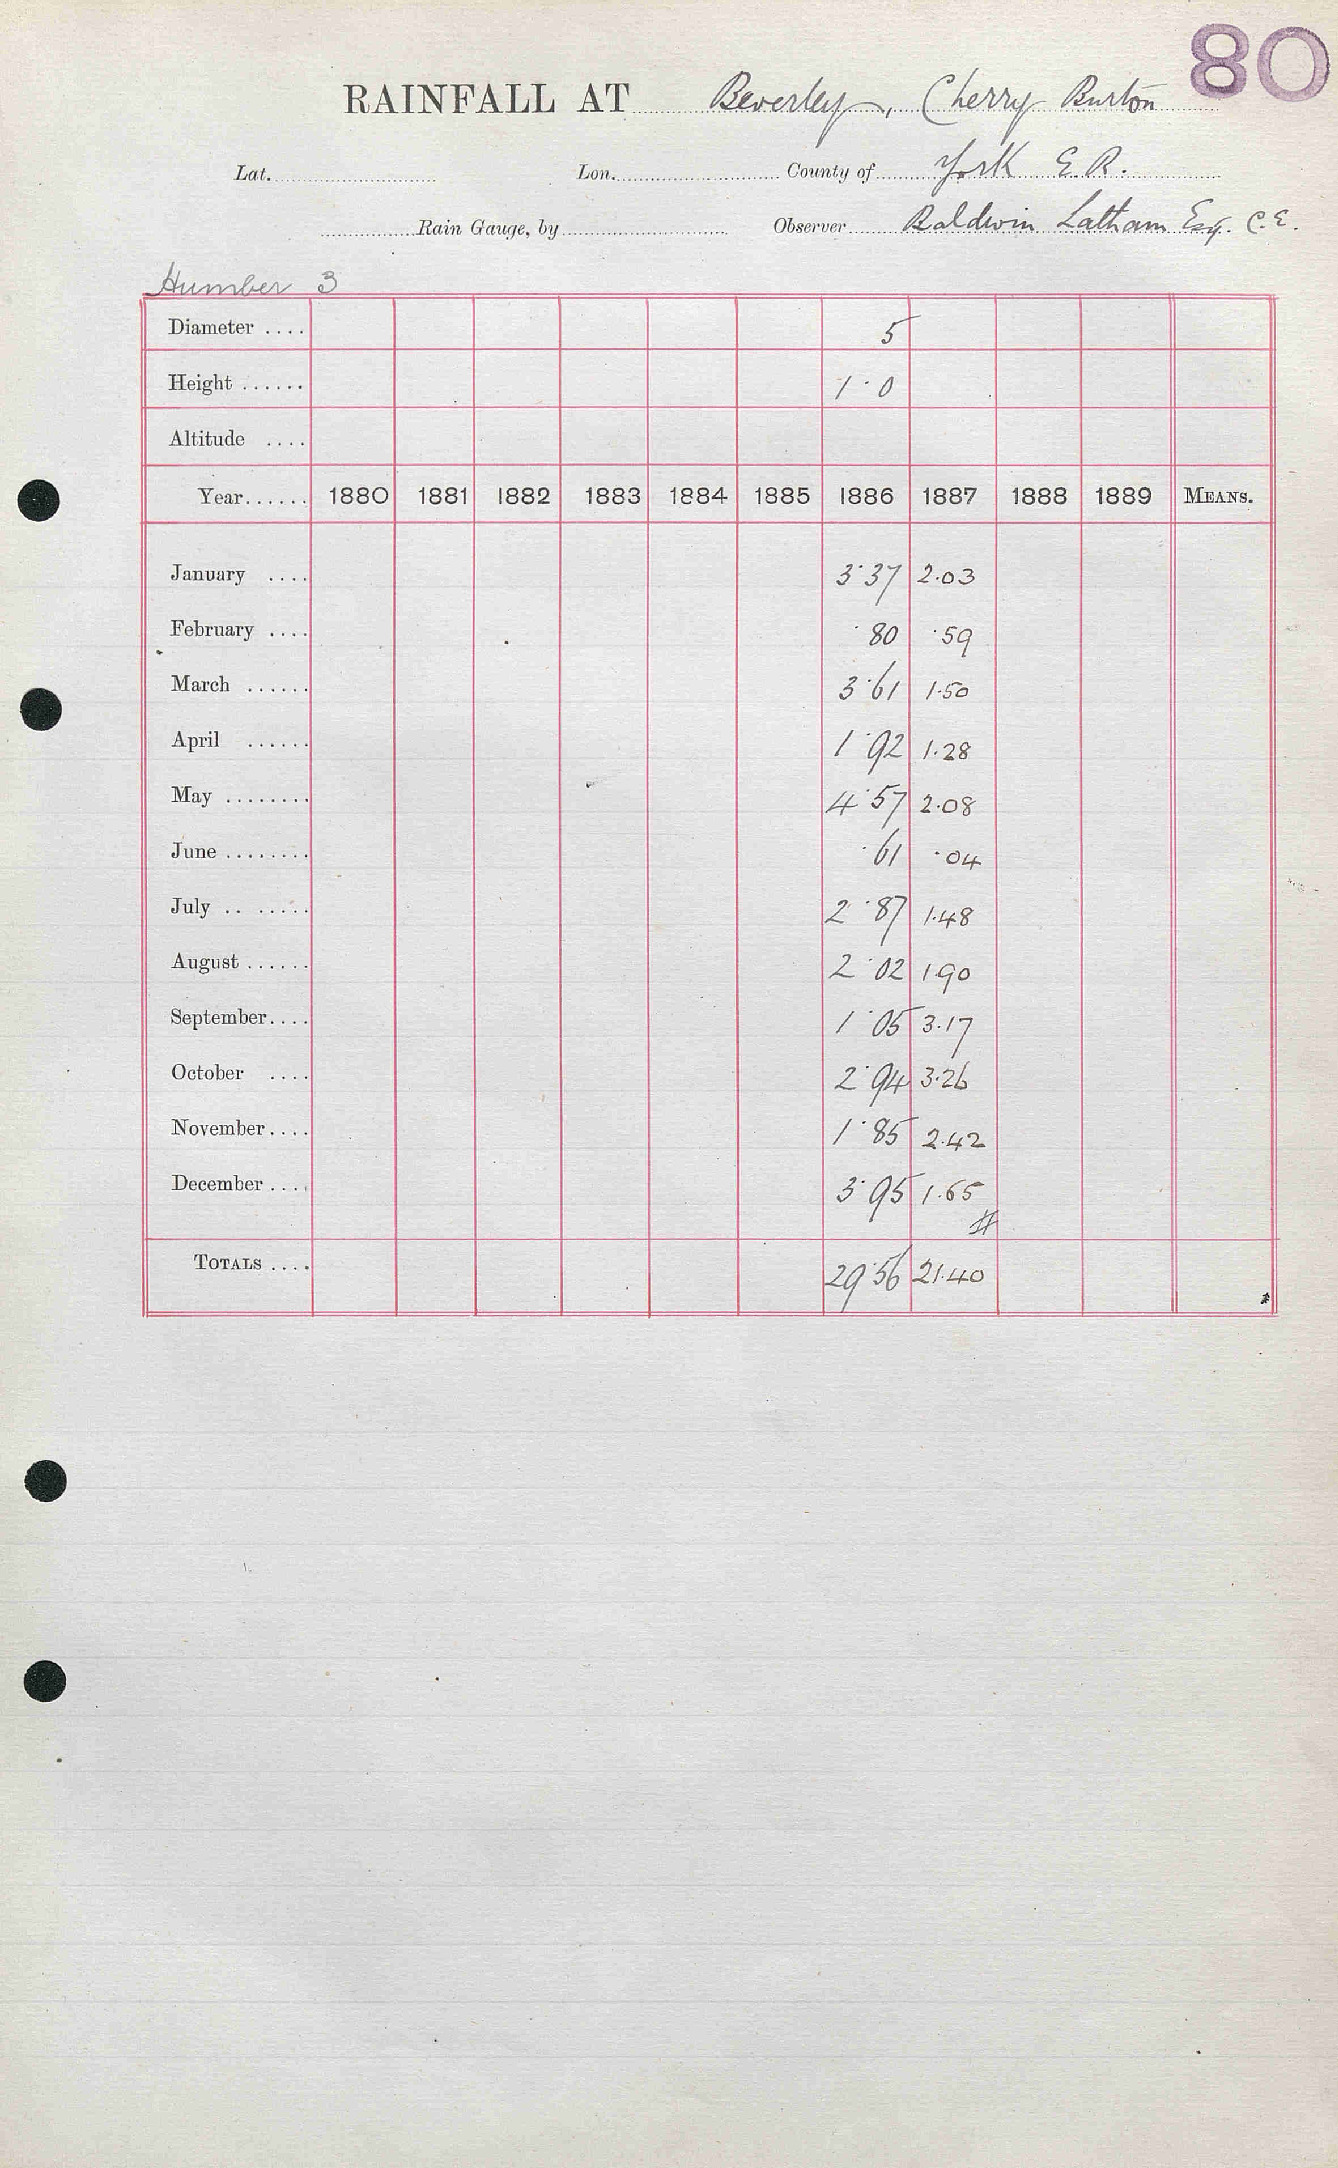 80
RAINFALL AT Beverley, Cherry Burton
Lat. Lon. County of York E.R.
Rain Gauge, by Observer Baldwin Latham Esq. C.E.
Humber 3
Diameter .... 5
Height ...... 1·0
Altitude ....
Year...... 1880 1881 1882 1883 1884 1885 1886 1887 1888 1889 MEANS.
January .... 3·37 2.03
February .... ·80 ·59
March ...... 3·61 1.50
April ...... 1·92 1.28
May ........ 4·57 2.08
June ........ ·61 ·04
July .. ..... 2·87 1.48
August ...... 2·02 1.90
September.... 1·05 3.17
October .... 2·94 3.26
November.... 1·85 2.42
December .... 3·95 1.65
#
TOTALS .... 29·56 21.40